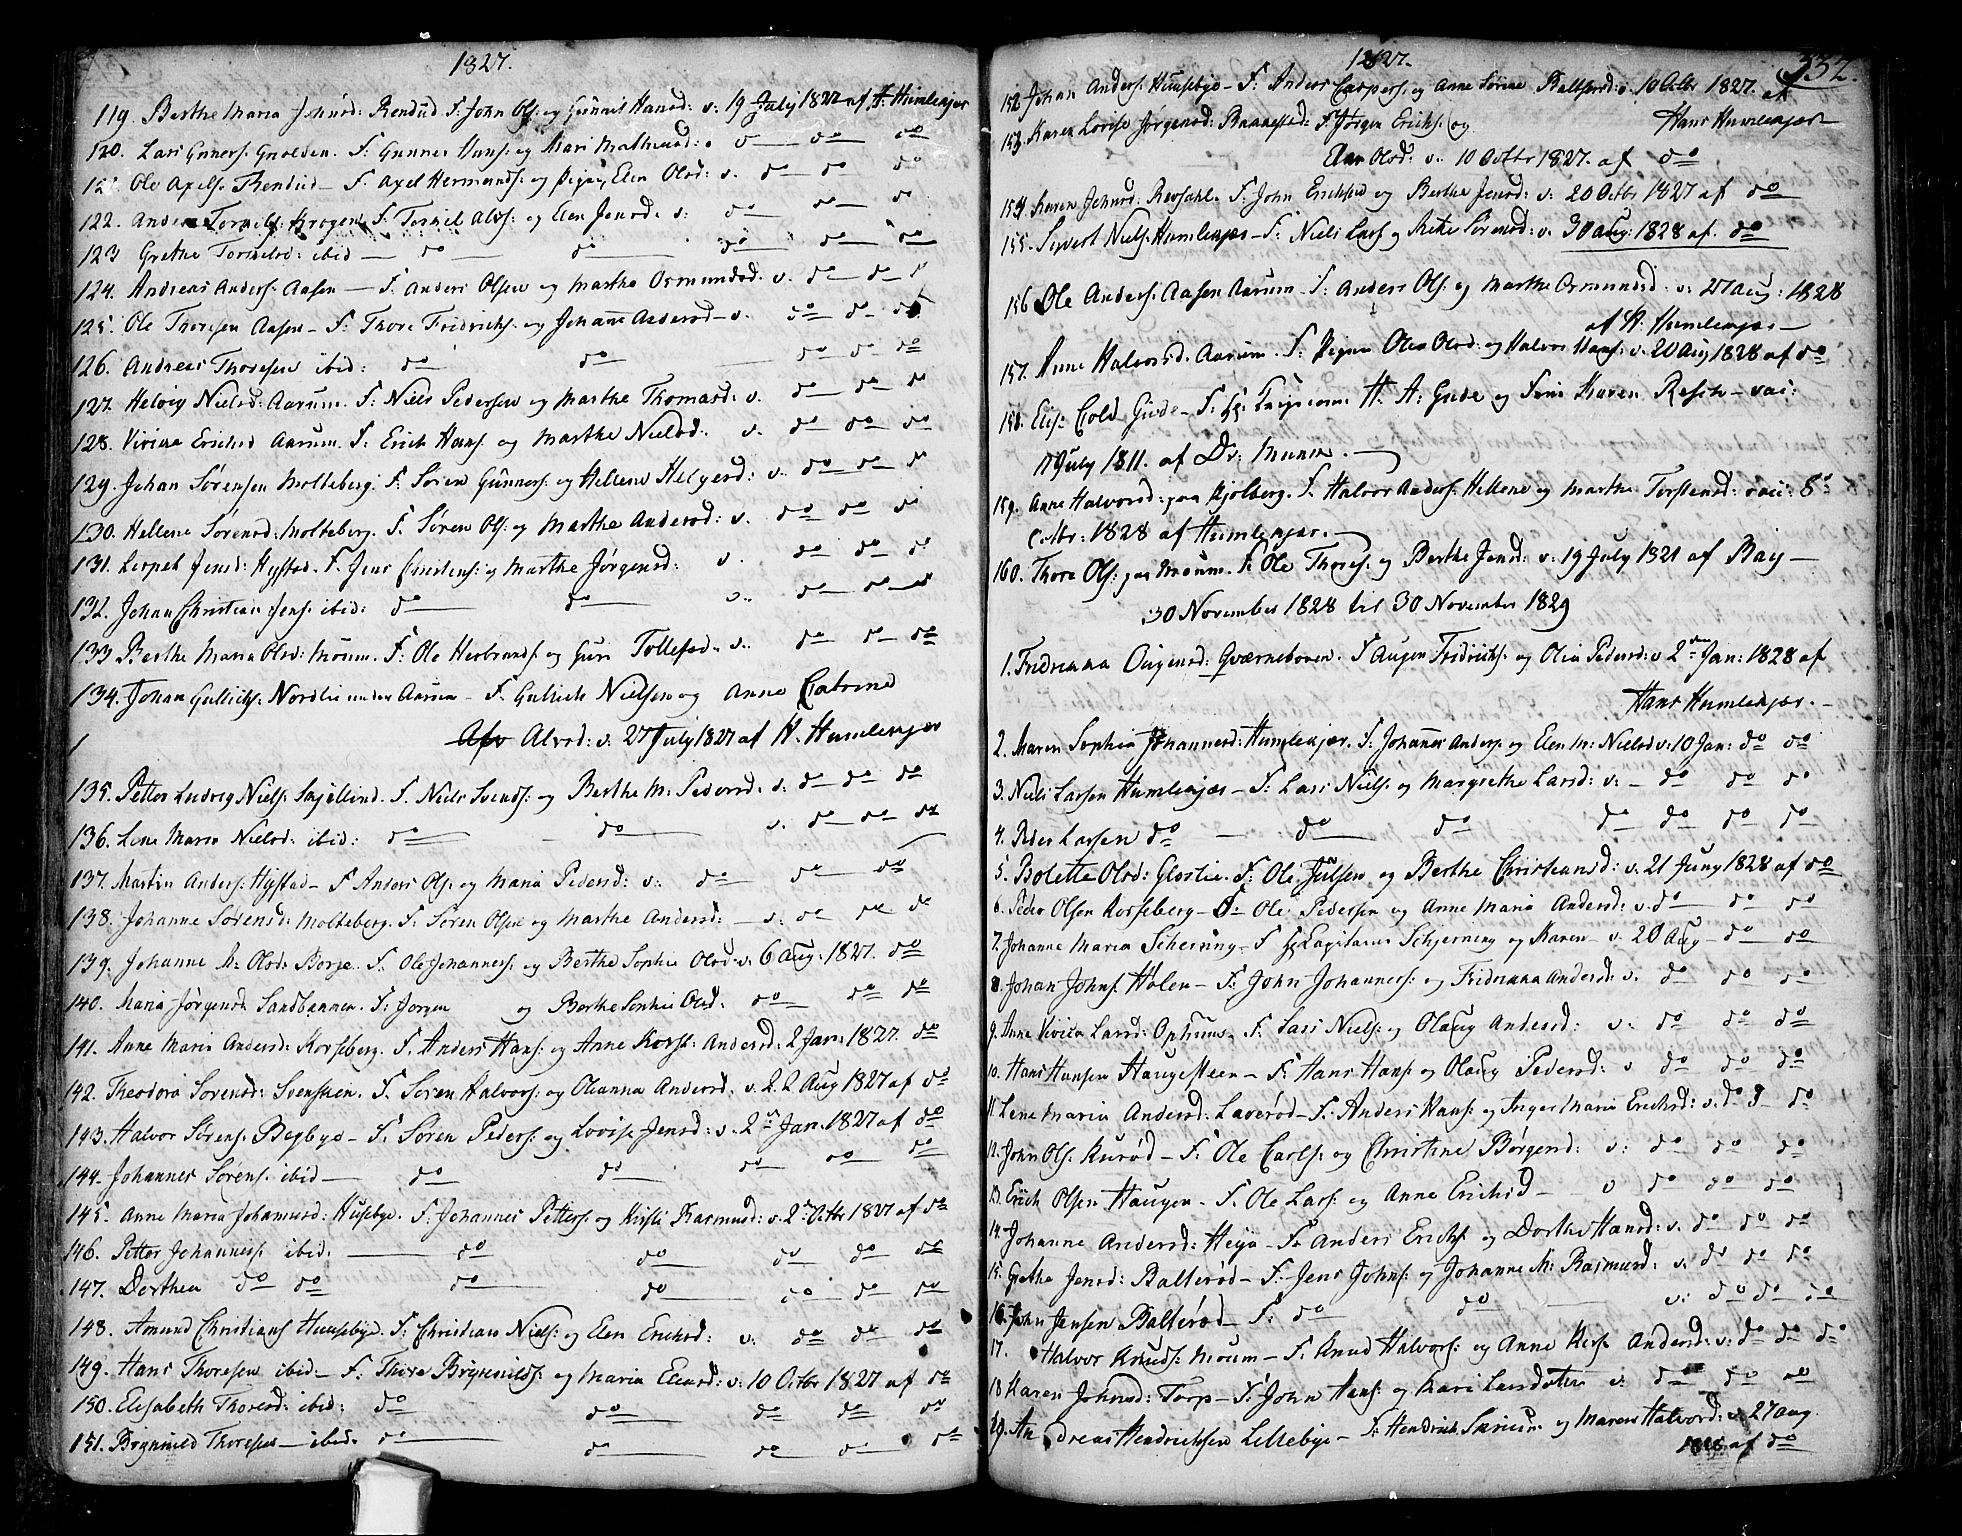 1827.
119. Berthe Maria Johnsd: Rendud F: John Ols: og Gunnil Hansd: v: 19 July 1827 af H. Humlekjær
120. Lars Gunners: F: Gunner Hans: og Mari do do
121. Ole Axels: Rendud — F: Axel Hermunds: og Pigen Elen Olsd: v. do do do
122. Anders Torkils: Krogen F: Torkil Alvs: og Elen Jensd: v: do do do
123 Grethe Torkelsd: ibid — do do do do do
124. Andreas Anders: Aasen — F: Anders Olsen og Marthe Ormundsd: v. do do do
125. Ole Thoresen Aasen — F: Thore Fridrichs: og Johanne Andersd — v. do do do
126. Andreas Thoresen ibid: do do do do do
127. Helvig Nielsd: Aarum. F: Niels Pedersen og Marthe Thomasd: v. do do do
128. Virina Erichsd Aarum. F: Erich Hans: og Marthe Nielsd: v. do do do
129. Johan Sörensen Molteberg. F: Sören Gunners: og Hellene Helgesd: v. do do do
130. Hellene Sörensd: Molteberg. F: Sören Ols: og Marthe Andersd: v. do do do
131. Lispet Jensd: Hystad. F: Jens Christens: og Marthe Jörgensd: v. do do do
132. Johan Christian Jens: ibid: do do v. do do do
133 Berthe Maria Olsd: Moum. F: Ole Herbrands: og Guri Tollefsd. v. do do do
134. Johan Gullichs: Nordlie under Aarum — F: Gullich Nielsen og Anne Catrine
Alvsd: v: 27 July 1827 af H. Humlekjær
135. Petter Ludvig Niels: Skjellind. F: Niels Svends: og Berthe M: Pedersd: v. do do do
136. Lene Maria Nielsd: ibid: do do v. do do do
137. Martin Anders: Hystad — F: Anders Ols: og Maria Pedersd: v: do do do
138. Johanne Sörensd: Molteberg. F: Sören Olsen og Marthe Andersd: — v: do do do
139. Johanne M: Olsd: Borge. F: Ole Johannes: og Berthe Sophie Olsd: v: 6 Aug: 1827. do
140. Maria Jörgensd Sandbakken. F: Jörgen og Berthe Sophie Olsd: do do do
141. Anne Maria Andersd: Korseberg. F: Anders Hans: og Anne Kirst: Andersd: 2 Jan: 1827. do
142. Theodora Sörensd: Svensken. F: Sören Halvors: og Oleanna Andersd: v. 22 Aug 1827 af do
143. Halvor Sörens: Begbye — F: Sören Peders: og Lovise Jensd: v. 2 Jan. 1827 af do
144. Johannes Sörens: ibid — do do do do do
145. Anne Maria Johannesd: Husebye. F: Johannes Petters: og Kirsti Rasmusd: v. 2 Octbr 1827 af do
146. Petter Johanness: ibid: do do do do do
147. Dorthea do do do do do do do
148. Amund Christians Huusebye. F: Christian Niels: og Elen Erichsd: v: do do do
149. Hans Thoresen ibid — F: Thore Brynilds: og Maria Einersd: v: 10 Octbr 1827 af do
150. Elisabeth Thoresd: ibid: do do do do do
151. Brynnild Thoresen — ibid: do do do do do
1827.
332.
152 Johan Anders: Huusebye — F: Anders Caspers: og Anne Sörine v. 10 Octbr 1827. af
Hans Humlekjær
153. Karen Lovise Jörgensd: F: Jörgen Erichs: og
Olsd: v. 10 Octbr 1827. af do
154. Karen Johnsd: Revhahl. F: John Erichsen og Berthe Jensd: v: 20 Octbr 1827 af do
155. Sivert Niels: Humlekjær — F: Niels Lars: og Sörensd: v. 30 Aug: 1828 af. do
156 Ole Anders: Aasen Aarum — F: Anders Ols: og Marthe Ormundsd: v: 27 Aug: 1828
af H. Humlekjær
157. Anne Halvorsd. Aarum. F: Pigen Olea Olsd: og Halvor Hans: v. 20 Aug 1828 af do
158. Elis: Cold Gude — F: Hr: H. A: Gude og Karen Resch — vac:
July 1811. af Dr: Munk.
159. Anne Halvorsd: paa Kjölberg. F: Halvor Anders: Hellene og Marthe Torstensd: vac: 8
1828 af Humlekjær.
160. Thore Ols: paa Moum. F: Ole Thores: og Berthe Jensd: v: 19 July 1821 af Bay —
30 November 1828 til 30 November 1829
1. Fridrikka Ougensd: Qværneboven. F: Augen Fridrichs: og Olia Pedersd: v 2 Jan: 1828 af
Hans Humlekjær. —
2. Maren Sophia Johannesd: Humlekjær. F: Johannes Anders: og Elen M: Nielsd: v: 10 Jan: do do
3. Niels Larsen Humlekjær — F: Lars Niels: og Margrethe Larsd: v: — do do do
4. Peder Larsen do — do do do do do do
5. Bolette Olsd: Glostie. F: Ole Julsen og Berthe Christiansd: v. 21 Juny 1828 af do
6. Peder Olsen Korseberg — F: Ole Pedersen og Anne Maria Andersd: v. do do do
7. Johanne Maria Scherning — F: Hr Capitain Schjerning og Karen — v. 20 Aug — do do
8. Johan Johns: Holen — F: John Johanness: og Fridrikka Andersd: v: do do do
9. Anne Larsd: Opthuus. F: Lars Niels: og Olaug Andersd: v: do do do
10. Hans Hansen Haugesteen — F: Hans Hans: og Olaug Pedersd: v do do do
11. Lene Maria Andersd: Laveröd — F: Anders Hans: og Inger Maria Erichsd: v. do do do
12. John Ols: Kuröd — F: Ole Carls: og Christine Börgesd: v: do do do
13. Erich Olsen Haugen — F: Ole Lars: og Anne Erichsd — v do do do
14. Johanne Andersd: Heija — F: Anders Erichs: og Dorthe Hansd: v: do do do
15. Grethe Jensd: Balteröd — F: Jens Johns: og Johanne M: Rasmusd: v: do do do
16. John Jensen Balteröd — F: do do v: do do do
17. Halvor Knuds: Moum — F: Knud Halvors: og Anne Kirst: Andersd: v: do do do
18 Karen Johnsd: Torp — F: John Hans: og Kari Larsdatter v: do do do
19. Andreas Hendrichsen Lillebye — F: Hendrich og Maren Halvorsd: v. 27 Aug.
1828 af do